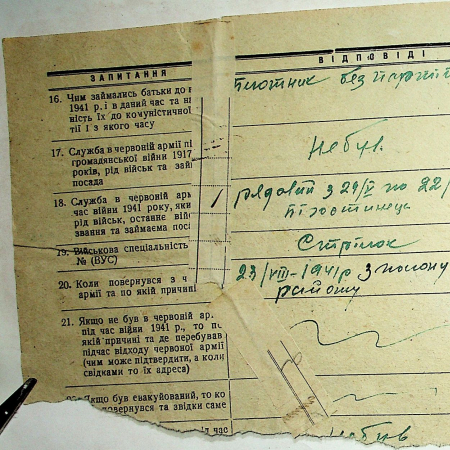 ЗАПИТАННЯ
ВІДПОВІДІ
16. Чим займались батьки до в
1941 р. і в даний час та
ність їх до комуністичної
тії і з якого часу
плотник без парті
17. Служба в червоній армії пі
громадянської війни 1917
років, рід військ та
посада
Не був.
18. Служба в червоній
час війни 1941 року,
рід військ, останнє
звання та займаема
рядовий з по 22/
19. Військова спеціальність
№ (ВУС)
Стрілок
20. Коли повернувся з ч
армії та по якій причині
23/VIII-1941 р з полону
21. Якщо не був в червоній
під час війни 1941 р., то
якій причині та де перебував
підчас відходу червоної армії
(чим може підтвердити, а
свідками то їх адреса)
Якщо був евакуйований, то
повернувся та звідки саме
час
Не був